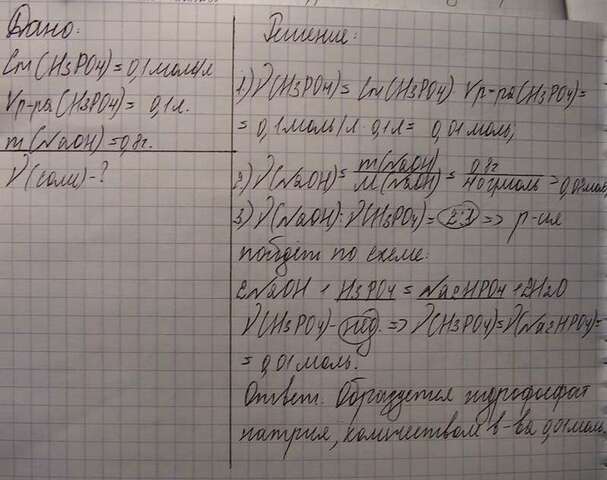 Дано:
Cm(H3PO4)=0,1моль/л
Vр-ра(H3PO4)= 0,1л.
m(NaOH)=0,8г.
ν(соли)-?
Решение:
1) ν(H3PO4)=Cm(H3PO4)·Vр-ра(H3PO4)=
= 0,1моль/л·0,1л= 0,01моль;
2) ν(NaOH)= m(NaOH)/M(NaOH) = 0,8г/40г/моль =0,02моль
3) ν(NaOH):ν(H3PO4)=2:1 => р-ия
пойдёт по схеме:
2NaOH + H3PO4 = Na2HPO4 + 2H2O
ν(H3PO4)-нед. => ν(H3PO4)=ν(Na2HPO4)=
= 0,01моль.
Ответ: Образуется гидрофосфат
натрия, количеством в-ва 0,01моль.